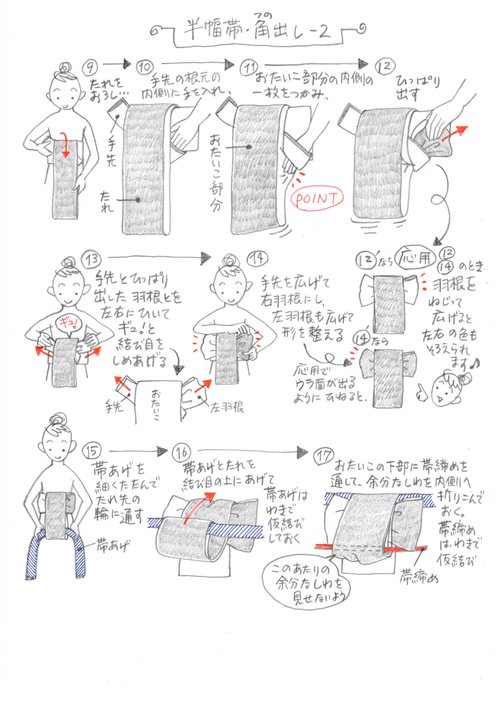 半幅帯・角出し-2
つの
⑨
たれを
おろし…
⑩
手先の根元の
内側に手を入れ、
手先
たれ
⑪
おたいこ部分の内側の
一枚をつかみ、
おたいこ部分
POINT
⑫
ひっぱり
出す
⑬
手先とひっぱり
出した羽根とを
左右にひいて
ギュッと
結び目を
しめあげる
ギュ!
手先
おたいこ
左羽根
⑭
手先を広げて
右羽根にし、
左羽根も広げて
形を整える
⑫'なら
応用
⑭なら
応用で
ウラ面が出る
ようにひねると、
⑫
⑭のとき、
羽根を
ねじって
広げると
左右の色も
そろえられ
ます♪
⑮
帯あげを
細くたたんで
たれ先の
輪に通す
帯あげ
⑯
帯あげとたれを
結び目の上にあげて
帯あげは
わきで
仮結び
しておく
⑰
おたいこの下部に帯締めを
通して、余分なしわを内側へ
折りこんで
おく。
帯締め
は、わきで
仮結び
帯締め
このあたりの
余分なしわを
見せないよう